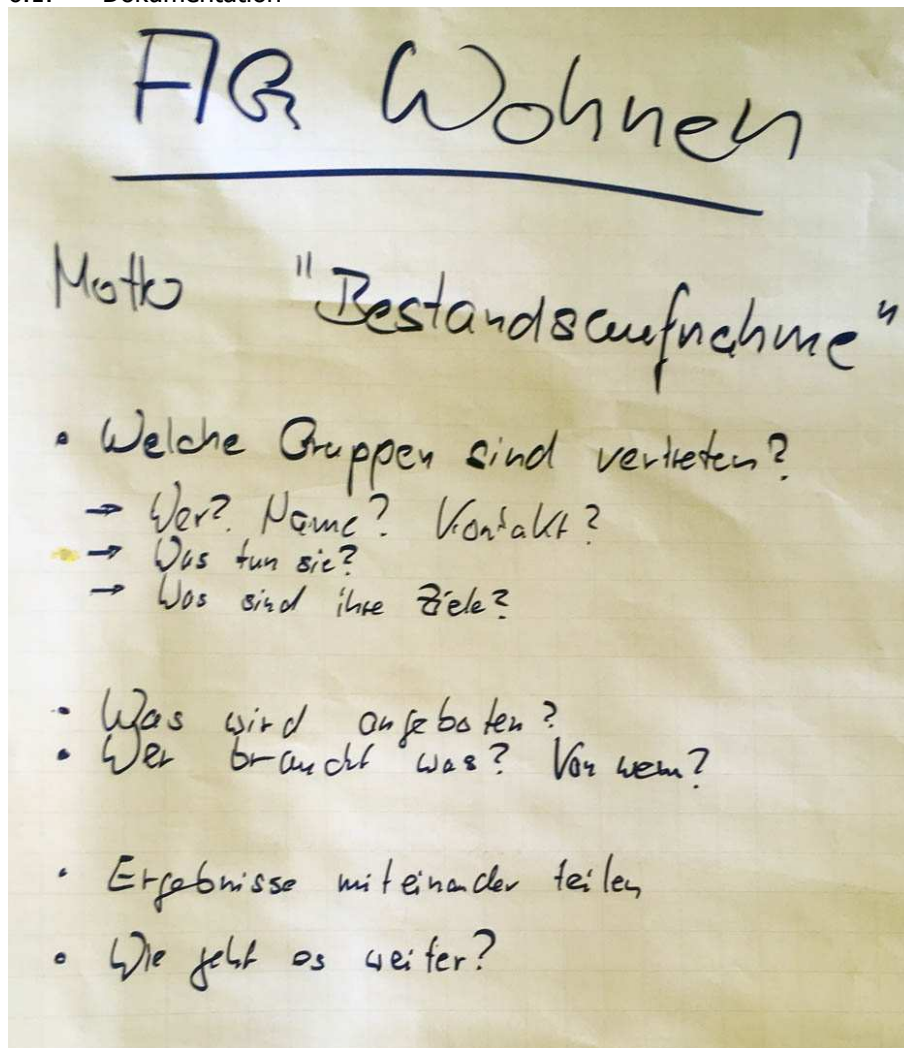 AG Wohnen
Motto "Bestandsaufnahme"
• Welche Gruppen sind vertreten?
→ Wer? Name? Kontakt?
→ Was tun sie?
→ Was sind ihre Ziele?
• Was wird angeboten?
• Wer braucht was? Von wem?
• Ergebnisse miteinander teilen
• Wie geht es weiter?